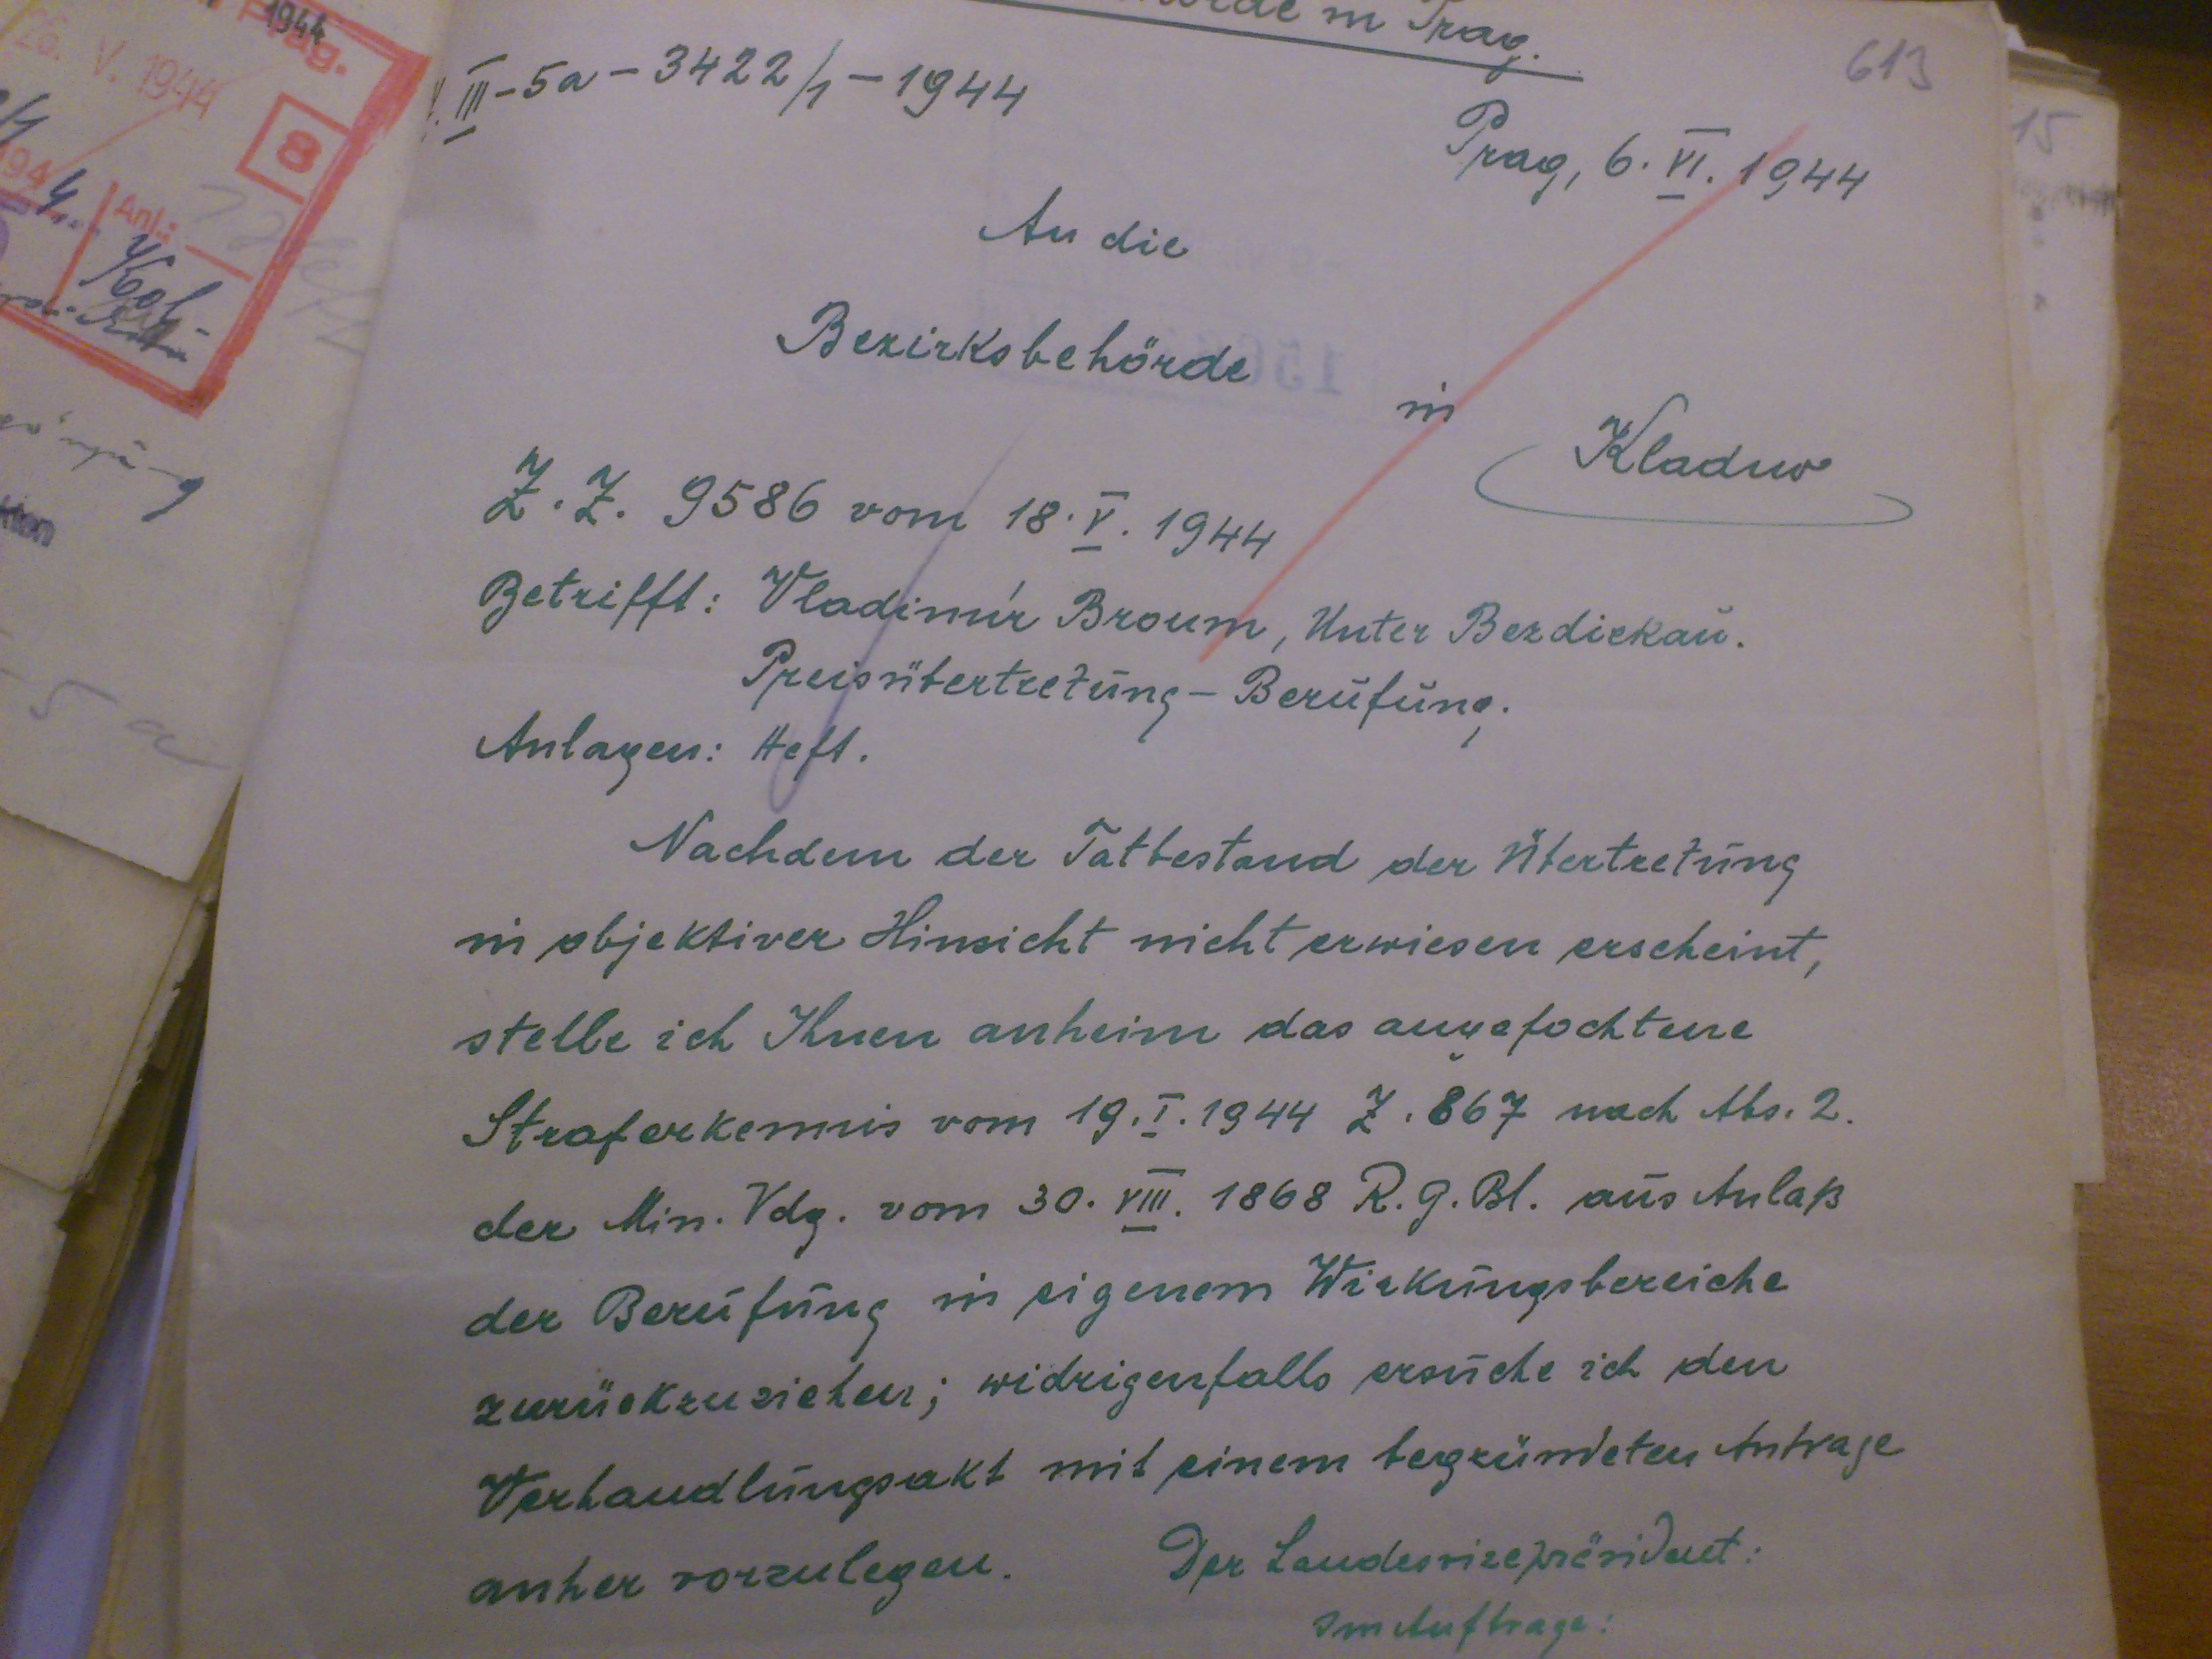 1944
Prag.
26. V. 1944
8
1944
Anl.:
5 a
in Prag.
613
15
III-5a-3422/1-1944
Prag, 6. VI. 1944
An die
Bezirksbehörde
in
Kladno
Z. Z. 9586 vom 18. V. 1944
Betrifft: Vladimír Broum, Unter Bezdiekau.
Preisübertretung - Berufung.
Anlagen: Heft.
Nachdem der Tatbestand der Übertretung
in objektiver Hinsicht nicht erwiesen erscheint,
stelle ich Ihnen anheim das angefochtene
Straferkennis vom 19. I. 1944 Z. 867 nach Abs. 2.
der Min. Vdg. vom 30. VIII. 1868 R. G. Bl. aus Anlaß
der Berufung in eigenem Wirkungsbereiche
zurückzuziehen; widrigenfalls ersuche ich den
Verhandlungsakt mit einem begründeten Antrage
anher vorzulegen.
Der Landesvizepräsident:
Im Auftrage: